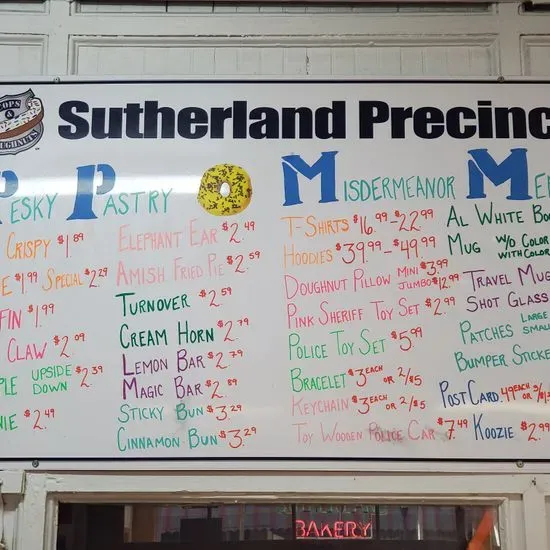 COPS &
DOUGHNUTS
Sutherland Precinc
Pesky Pastry
Crispy $1.89
E $1.99 Special $2.29
FIN $1.99
Claw $2.09
PLE Upside Down $2.39
NIE $2.49
Elephant Ear $2.49
Amish Fried Pie $2.59
Turnover $2.59
Cream Horn $2.79
Lemon Bar $2.79
Magic Bar $2.89
Sticky Bun $3.29
Cinnamon Bun $3.29
Misdermeanor Me
T-Shirts $16.99-$22.99
Hoodies $39.99-$49.99
Doughnut Pillow Mini $3.99 Jumbo $12.99
Pink Sheriff Toy Set $2.99
Police Toy Set $5.99
Bracelet $3 each or 2/$5
Keychain $3 each or 2/$5
Toy Wooden Police Car $7.49
Al White Boo
Mug w/o Color
with Color
Travel Mug
Shot Glass
Patches Large
Small
Bumper Sticke
Post Card .49 each
Koozie $2.99
BAKERY